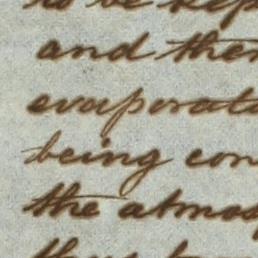 to be kep
and then
evaporate
being con
the atmos